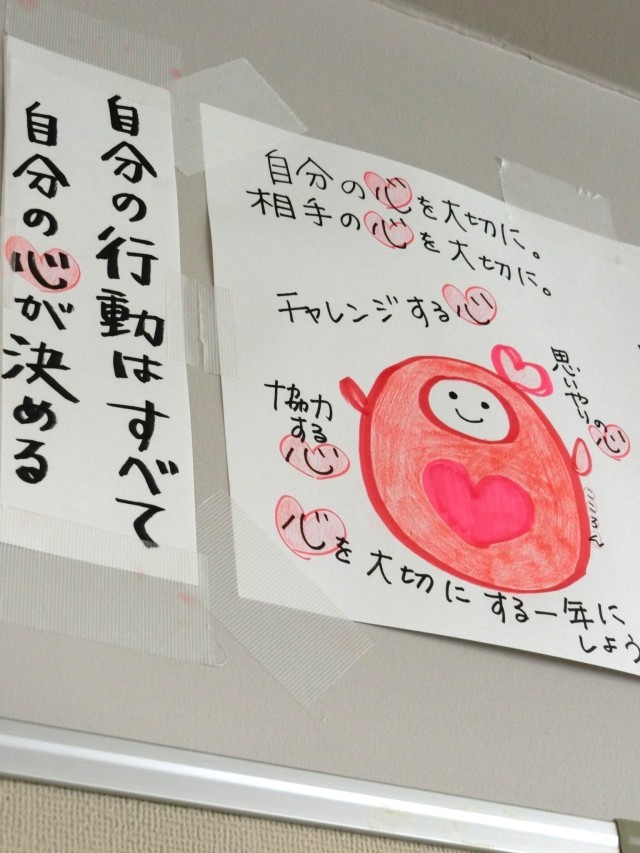 自分の行動はすべて
自分の心が決める
自分の心を大切に。
相手の心を大切に。
チャレンジする心
思いやりの心
協力
する
心
こころん
心を大切にする一年に
しょう